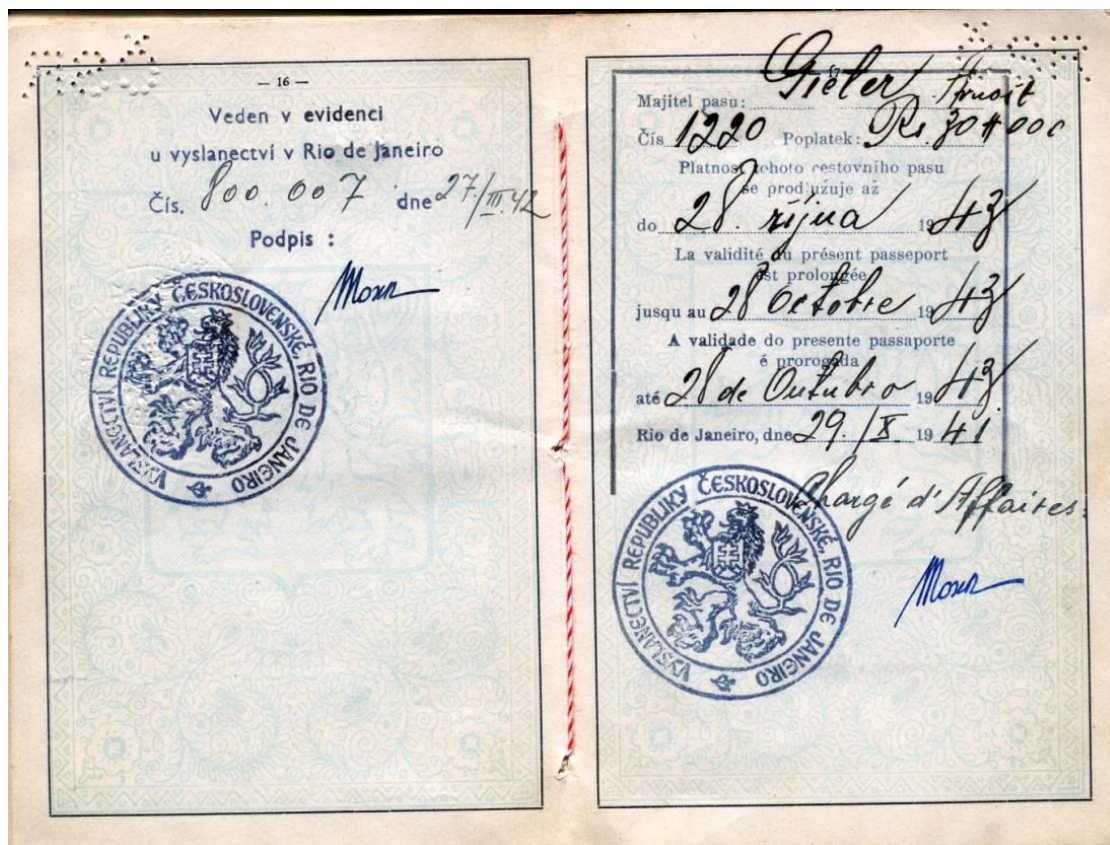 — 16 —
Veden v evidenci
u vyslanectví v Rio de Janeiro
Čís. 800.007. dne 27/III.42
Podpis :
VYSLANECTVÍ REPUBLIKY ČESKOSLOVENSKÉ, RIO DE JANEIRO
17
Majitel pasu: Arnošt
Čís 1220 Poplatek: Rs. 30#000
Platnost tohoto cestovního pasu
se prodlužuje až
do 28. října 1943
La validité du présent passeport
est prolongée
jusqu au 28 Octobre 1943
A validade do presente passaporte
é prorogada
até 28 de Outubro 1943
Rio de Janeiro, dne 29./X 1941.
Chargé d'Affaires:
VYSLANECTVÍ REPUBLIKY ČESKOSLOVENSKÉ, RIO DE JANEIRO